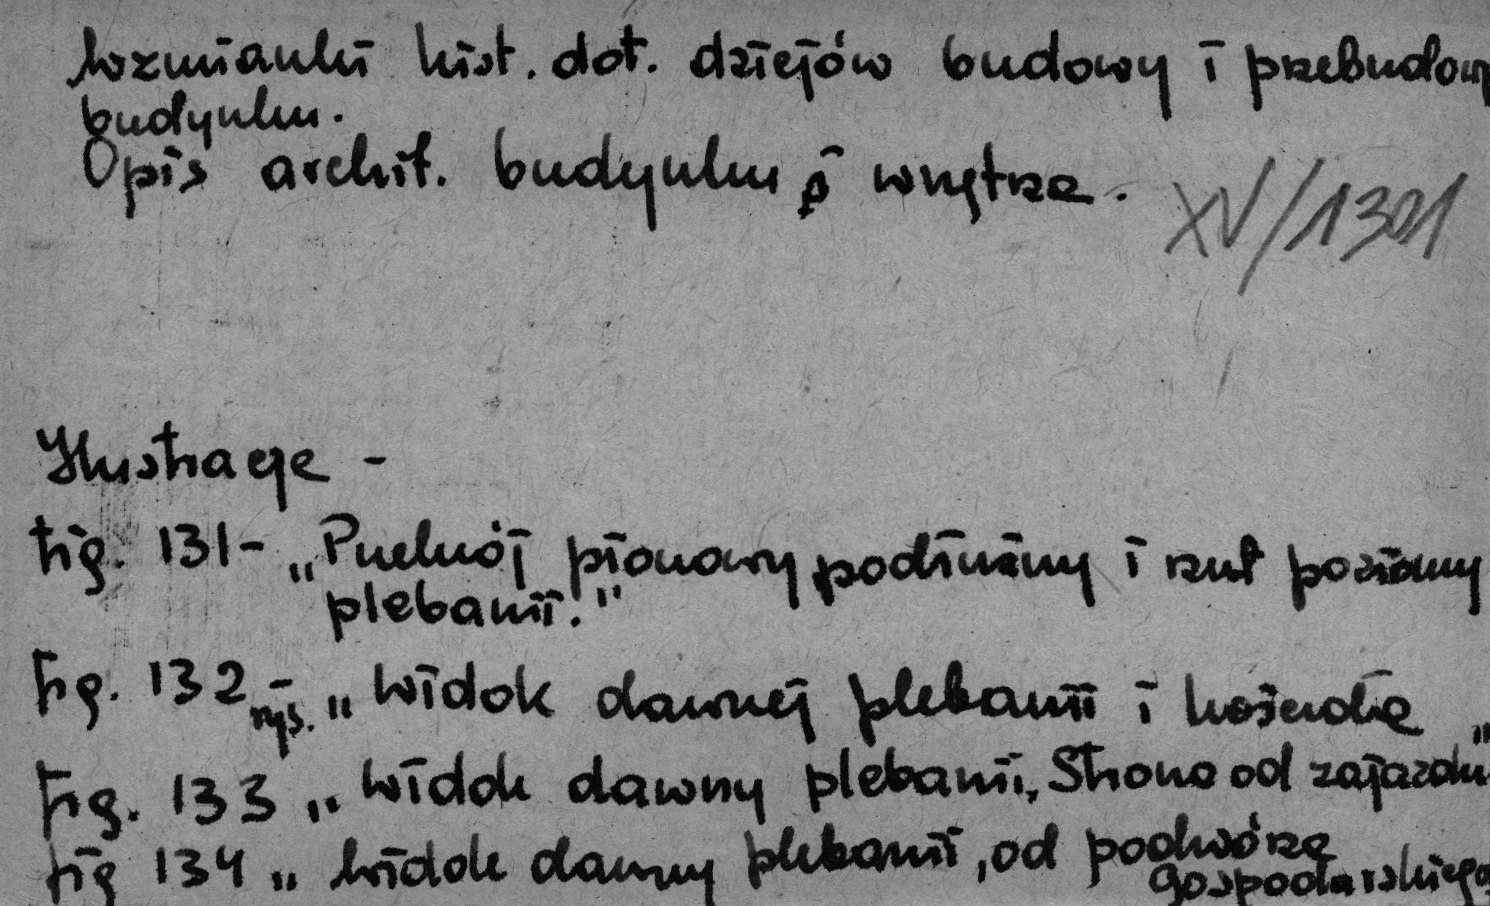 Wzmianki hist. dot. dziejów budowy i przebudowy
budynku.
Opis archit. budynku i wnętrza.
XV/1301
Ilustracje -
Fig. 131- „Przekrój pionowy podłużny i rzut poziomy
plebanii."
Fig. 132 - rys. „Widok dawnej plebanii i kościoła"
Fig. 133 „Widok dawny plebanii, Strona od zajazdu"
Fig 134 „Widok dawny plebanii, od podwórza
gospodarskiego